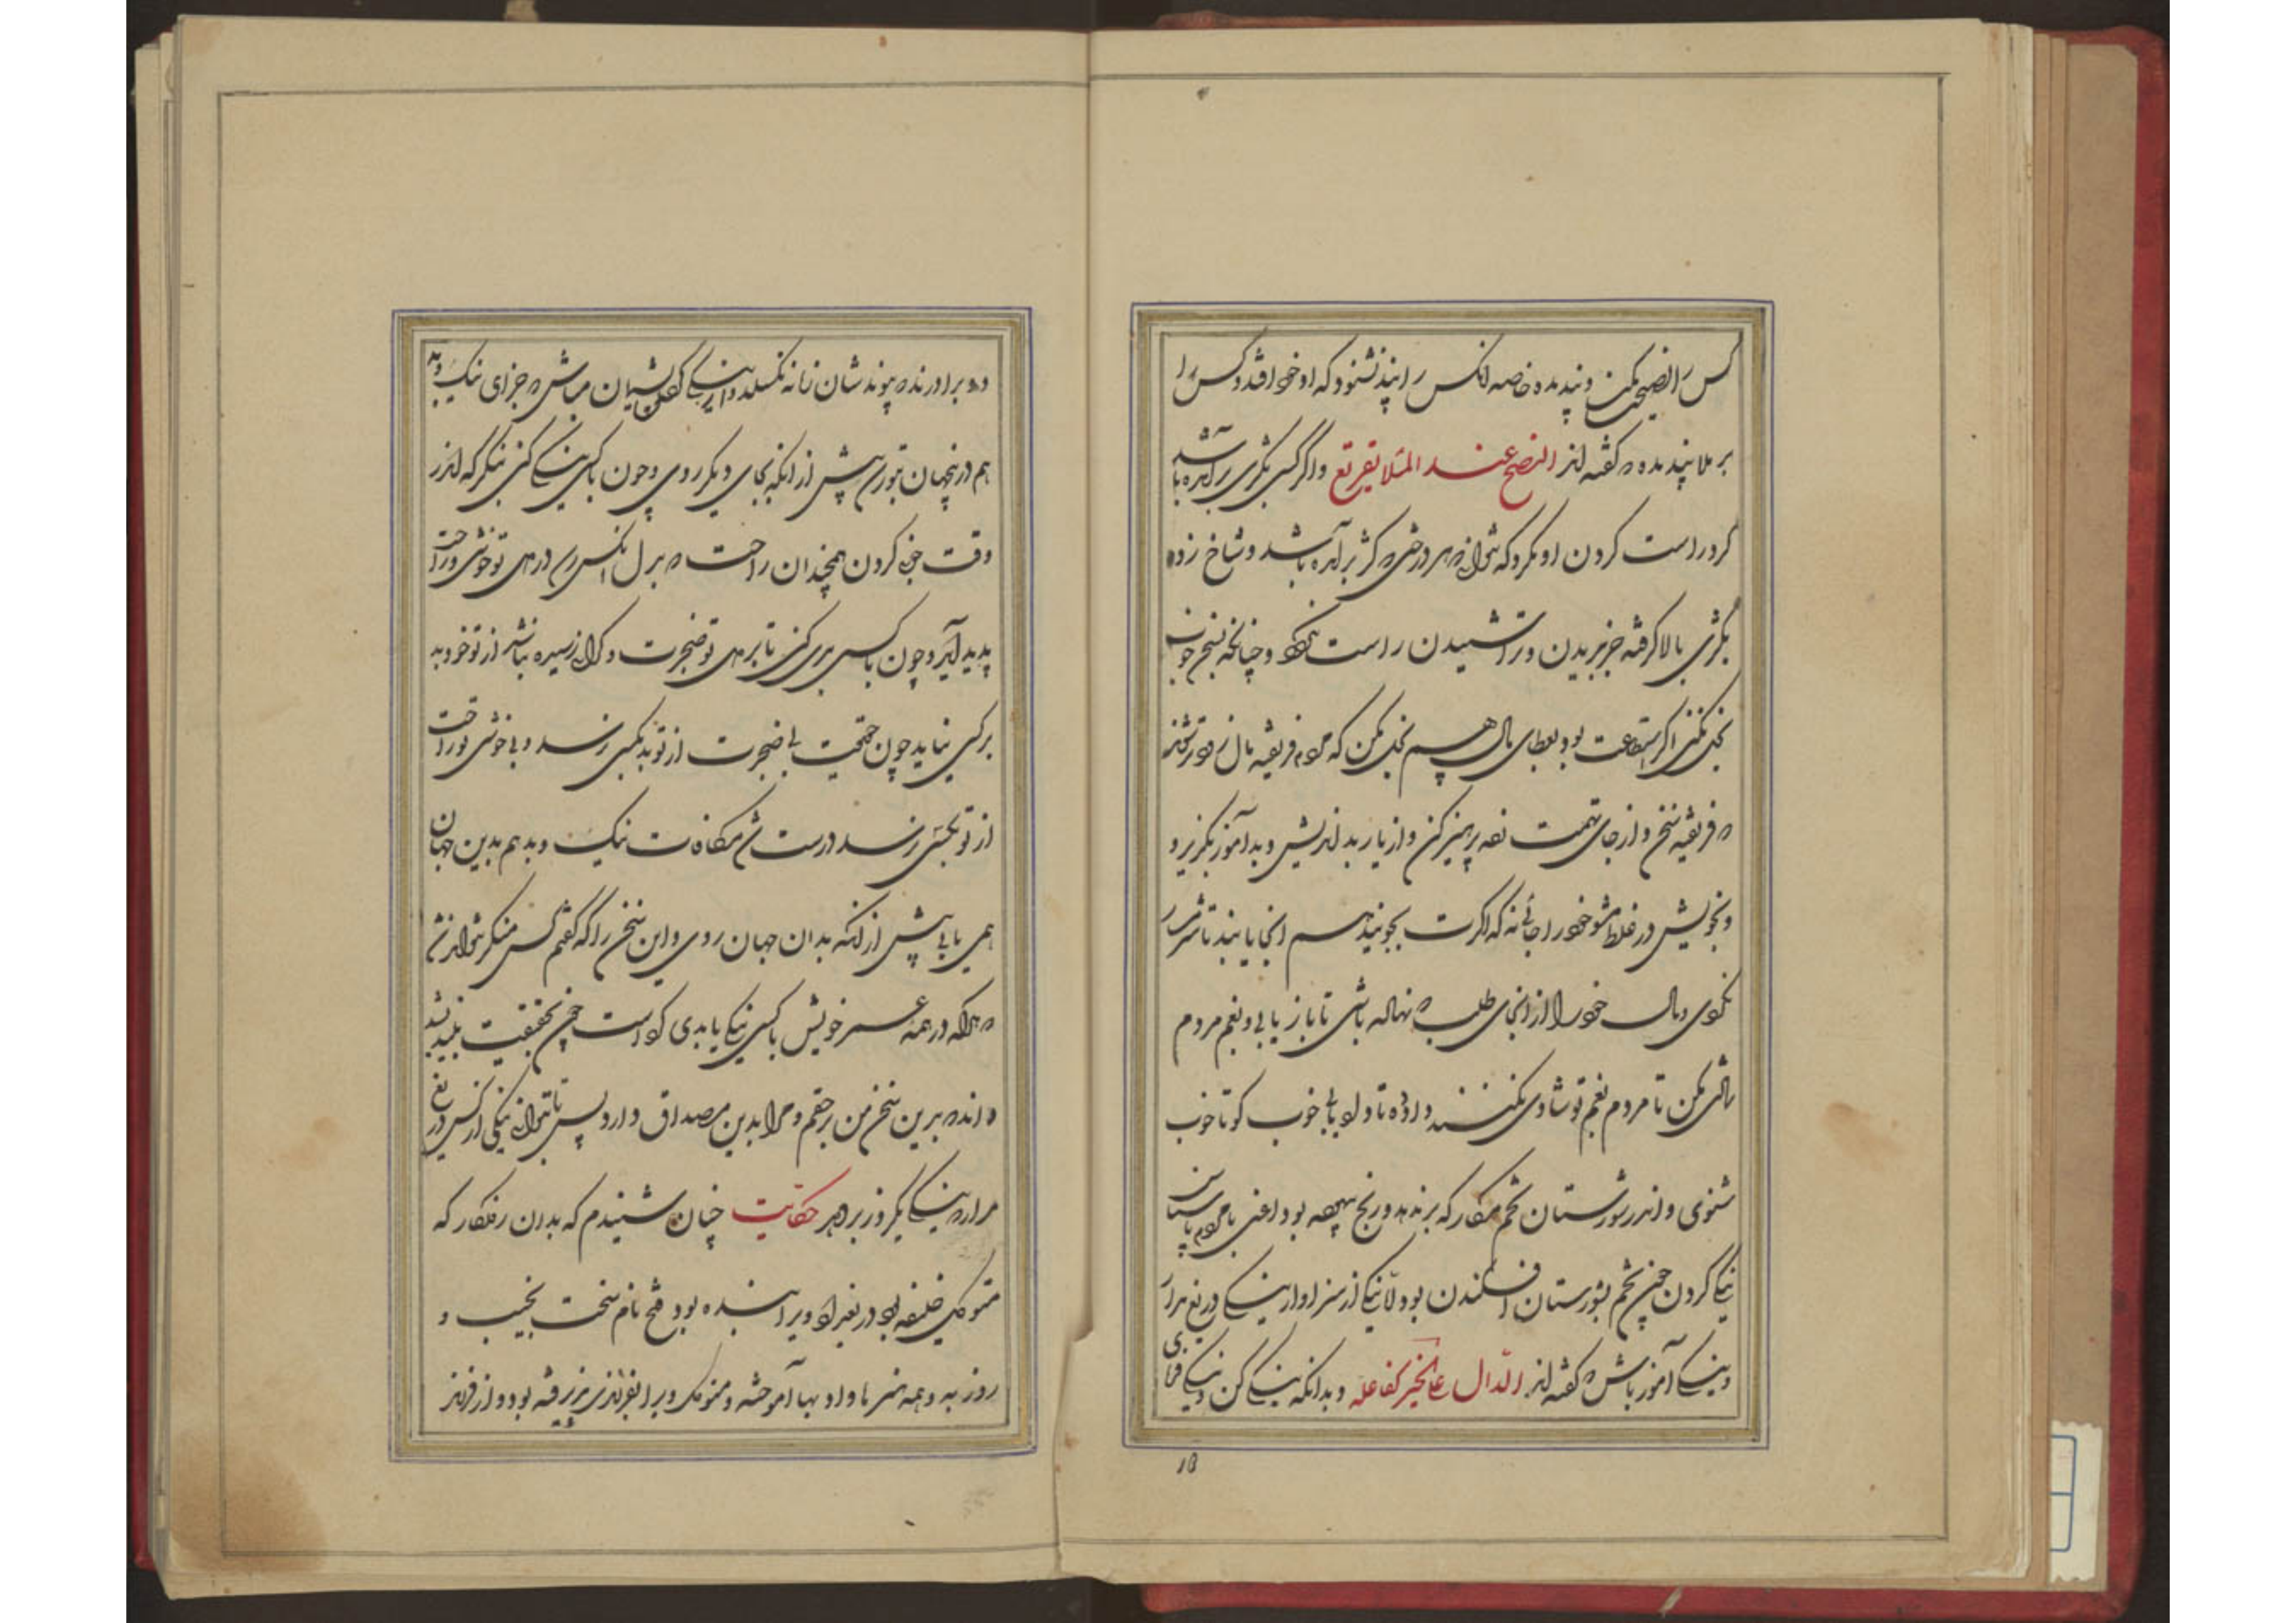 کس را نصیحت مکن و پند مده خاصه آنکس را پند نشنود که او خود افتد و کس را
بر ملا پند مده که گفته‌اند النصح عند الملا تقریع و اگر کسی بکژی بر آمده باشد
گرد راست کردن او مگرد که نتوانی که هر درختی که کژ بر آمده باشد و شاخ زده
بکژی بالا گرفته جز ببریدن و تراشیدن راست نگردد و چنانکه بسخن خوب
بخل نکنی اگر استطاعت بود بعطای مال هم بخل مکن که مردم فریفته مال زودتر شوند
که فریفته سخن و از جای تهمت زده پرهیز کن و از یار بد اندیش و بد آموز بگریز و
و بخویش در غلط مشو خود را جائی نه که اگرت بجویند هم آنجا یابند تا شرمسار
نگردی و مال خود را از آنجای طلب که نهاده باشی تا باز یابی و بغم مردم
شادی مکن تا مردم بغم تو شادی نکنند و داد ده تا داد یابی خوب گو تا خوب
شنوی و اندر شورستان تخم مکار که بر ندهد و رنج بیهوده بود اعنی با مردم ناسپاس
نیکی کردن چون تخم بشورستان افکندن بود و لا نیکی از سزاوار نیکی دریغ مدار
و نیکی آموز باش که گفته‌اند الدّال علی الخیر کفاعله و بدانکه نیکی کن و نیکی فرمای
دو برادرند که پیوندشان زمانه نگسلد و از نیکی کردن پشیمان مباش که جزای نیک و بد
هم درین جهان بتو رسد پیش از آنکه بجای دیگر روی و چون با کسی نیکی کنی بنگر که اندر
وقت خوبی کردن همچندان راحت که بدل آنکس رسد در دل تو خوشی و راحت
پدید آید و چون با کسی بدی کنی تا بر دل تو ضجرت و گرانی رسیده باشد از تو خود بد
بر کسی نیاید چون حقیقت بی ضجرت از تو بد بکسی نرسد و بی خوشی تو راحت
از تو بکسی نرسد درست شد مکافات نیک و بد هم بدین جهان
همی یابی پیش از آنکه بدان جهان روی و این سخن را که گفتم کس منکر نتواند شد
که هر که در همه عمر خویش با کسی نیکی یا بدی کرده است چون بحقیقت بیندیشد
داند که برین سخن من بر حقم و مرا بدین مصداق دارد پس تا توانی نیکی از کس دریغ
مدار که نیکی یکروز بر دهد حکایت چنان شنیدم که بدان روزگار که
متوکل خلیفه بود در بغداد ویرا بنده بود فتح نام سخت نجیب و
روز به و همه هنرها و ادبها آموخته و متوکل ویرا بفرزندی پذیرفته بود و از فرزند